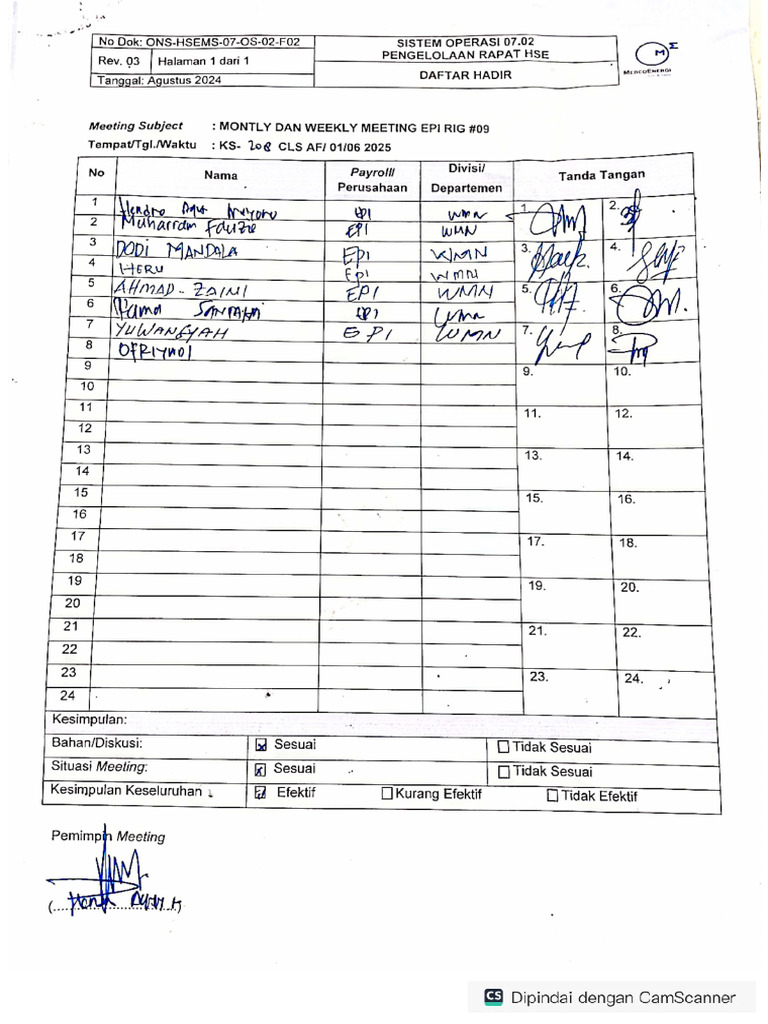 No Dok: ONS-HSEMS-07-OS-02-F02
Rev. 03 Halaman 1 dari 1
Tanggal: Agustus 2024
SISTEM OPERASI 07.02
PENGELOLAAN RAPAT HSE
DAFTAR HADIR
MEDCOENERGI
Meeting Subject : MONTLY DAN WEEKLY MEETING EPI RIG #09
Tempat/Tgl./Waktu : KS- 208 CLS AF/ 01/06 2025
No Nama Payroll/ Perusahaan Divisi/ Departemen Tanda Tangan
1 Hendro EPI WMN 1.
2 Muharram Fauzie EPI WMN 2.
3 DODI MANDALA EPI WMN 3.
4 HERU EPI WMN 4.
5 AHMAD - ZAINI EPI WMN 5.
6 EPI WMN 6.
7 YUWANSYAH EPI WMN 7.
8 OFRIYNOI 8.
9 9.
10 10.
11 11.
12 12.
13 13.
14 14.
15 15.
16 16.
17 17.
18 18.
19 19.
20 20.
21 21.
22 22.
23 23.
24 24.
Kesimpulan:
Bahan/Diskusi: Sesuai Tidak Sesuai
Situasi Meeting: Sesuai Tidak Sesuai
Kesimpulan Keseluruhan Efektif Kurang Efektif Tidak Efektif
Pemimpin Meeting
CS Dipindai dengan CamScanner